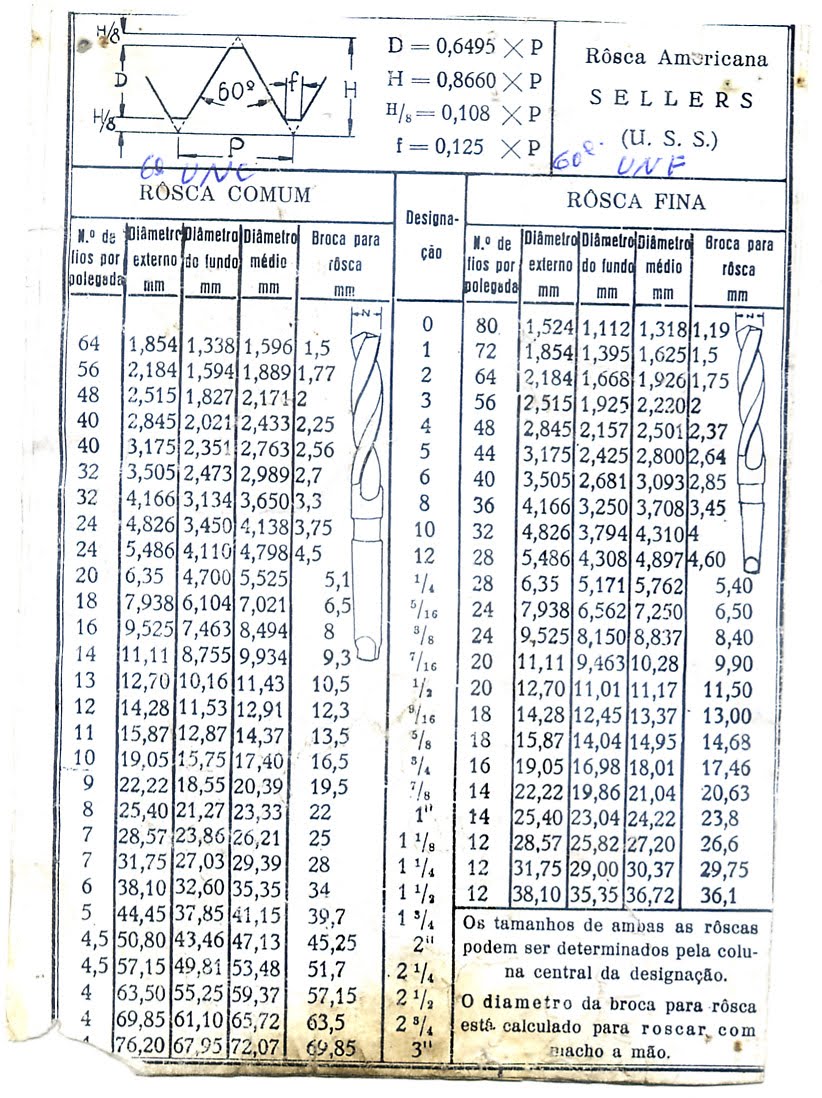 H/8
D
H/8
60º
f
H
P
D = 0,6495 × P
H = 0,8660 × P
H/8 = 0,108 × P
f = 0,125 × P
Rôsca Americana
SELLERS
(U. S. S.)
60º UNC
60º. UNF
RÔSCA COMUM
Designa-
ção
RÔSCA FINA
N.º de fios por polegada Diâmetro externo mm Diâmetro do fundo mm Diâmetro médio mm Broca para rôsca mm
N.º de fios por polegada Diâmetro externo mm Diâmetro do fundo mm Diâmetro médio mm Broca para rôsca mm
N
N
0 80 1,524 1,112 1,318 1,19
64 1,854 1,338 1,596 1,5 1 72 1,854 1,395 1,625 1,5
56 2,184 1,594 1,889 1,77 2 64 2,184 1,668 1,926 1,75
48 2,515 1,827 2,171 2 3 56 2,515 1,925 2,220 2
40 2,845 2,021 2,433 2,25 4 48 2,845 2,157 2,501 2,37
40 3,175 2,351 2,763 2,56 5 44 3,175 2,425 2,800 2,64
32 3,505 2,473 2,989 2,7 6 40 3,505 2,681 3,093 2,85
32 4,166 3,134 3,650 3,3 8 36 4,166 3,250 3,708 3,45
24 4,826 3,450 4,138 3,75 10 32 4,826 3,794 4,310 4
24 5,486 4,110 4,798 4,5 12 28 5,486 4,308 4,897 4,60
20 6,35 4,700 5,525 5,1 1/4 28 6,35 5,171 5,762 5,40
18 7,938 6,104 7,021 6,5 5/16 24 7,938 6,562 7,250 6,50
16 9,525 7,463 8,494 8 3/8 24 9,525 8,150 8,837 8,40
14 11,11 8,755 9,934 9,3 7/16 20 11,11 9,463 10,28 9,90
13 12,70 10,16 11,43 10,5 1/2 20 12,70 11,01 11,17 11,50
12 14,28 11,53 12,91 12,3 9/16 18 14,28 12,45 13,37 13,00
11 15,87 12,87 14,37 13,5 5/8 18 15,87 14,04 14,95 14,68
10 19,05 15,75 17,40 16,5 3/4 16 19,05 16,98 18,01 17,46
9 22,22 18,55 20,39 19,5 7/8 14 22,22 19,86 21,04 20,63
8 25,40 21,27 23,33 22 1" 14 25,40 23,04 24,22 23,8
7 28,57 23,86 26,21 25 1 1/8 12 28,57 25,82 27,20 26,6
7 31,75 27,03 29,39 28 1 1/4 12 31,75 29,00 30,37 29,75
6 38,10 32,60 35,35 34 1 1/2 12 38,10 35,35 36,72 36,1
5 44,45 37,85 41,15 39,7 1 3/4
4,5 50,80 43,46 47,13 45,25 2"
4,5 57,15 49,81 53,48 51,7 2 1/4
4 63,50 55,25 59,37 57,15 2 1/2
4 69,85 61,10 65,72 63,5 2 3/4
76,20 67,95 72,07 69,85 3"
Os tamanhos de ambas as rôscas
podem ser determinados pela colu-
na central da designação.
O diametro da broca para rôsca
está calculado para roscar com
macho a mão.